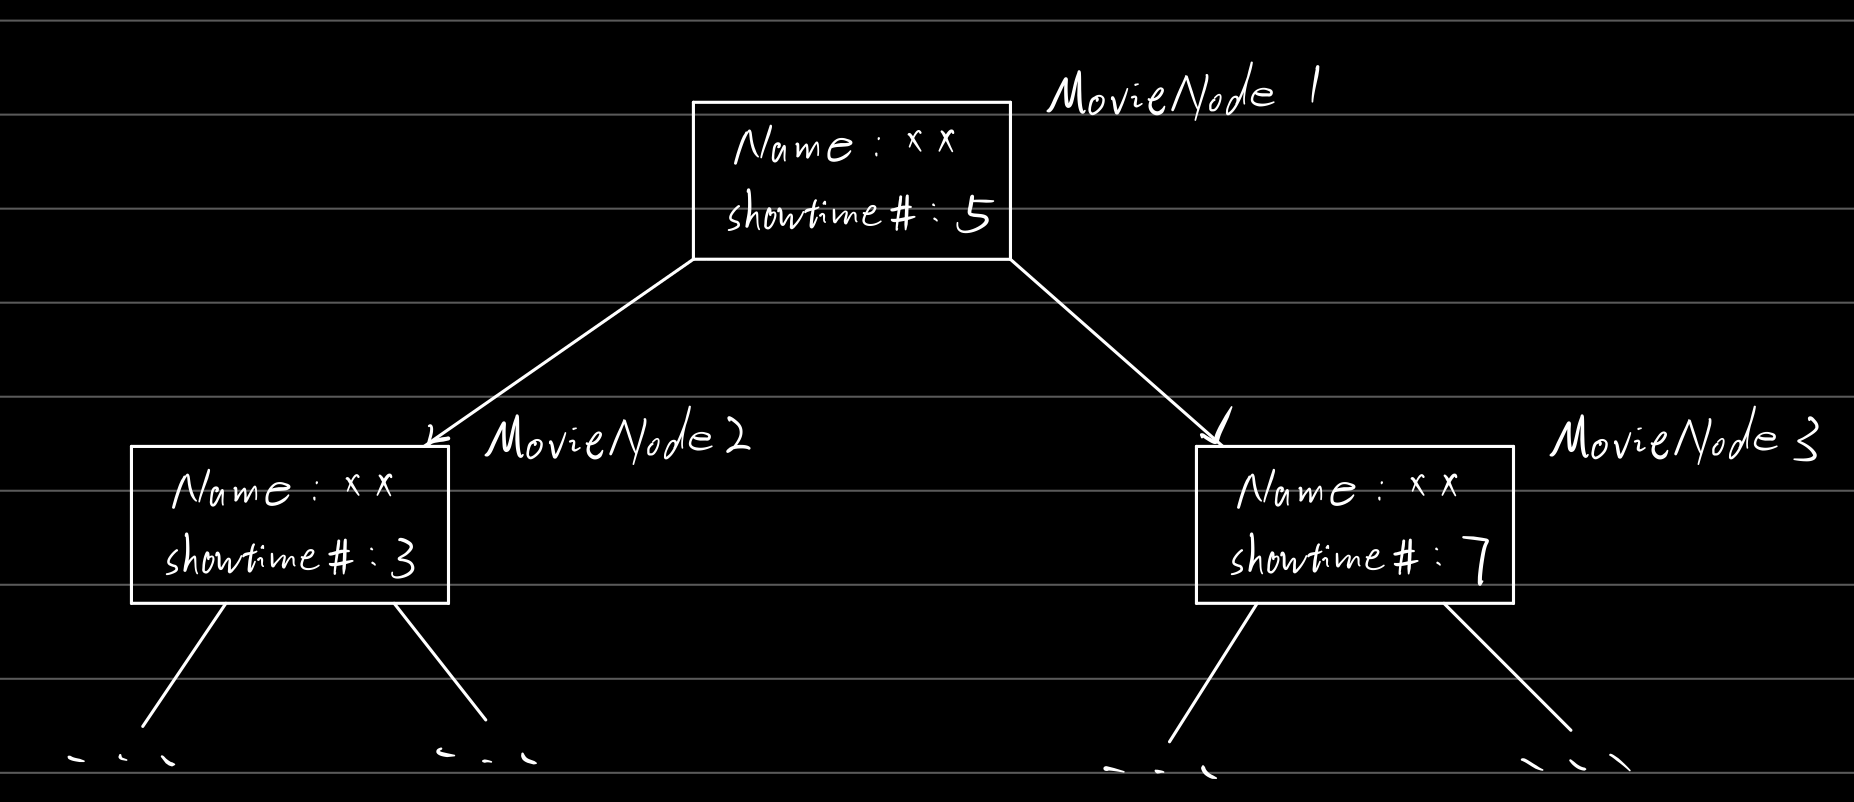 MovieNode 1
Name : x x
showtime # : 5
MovieNode 2
Name : x x
showtime # : 3
MovieNode 3
Name : x x
showtime # : 7
- - -
- - -
- - -
- - -